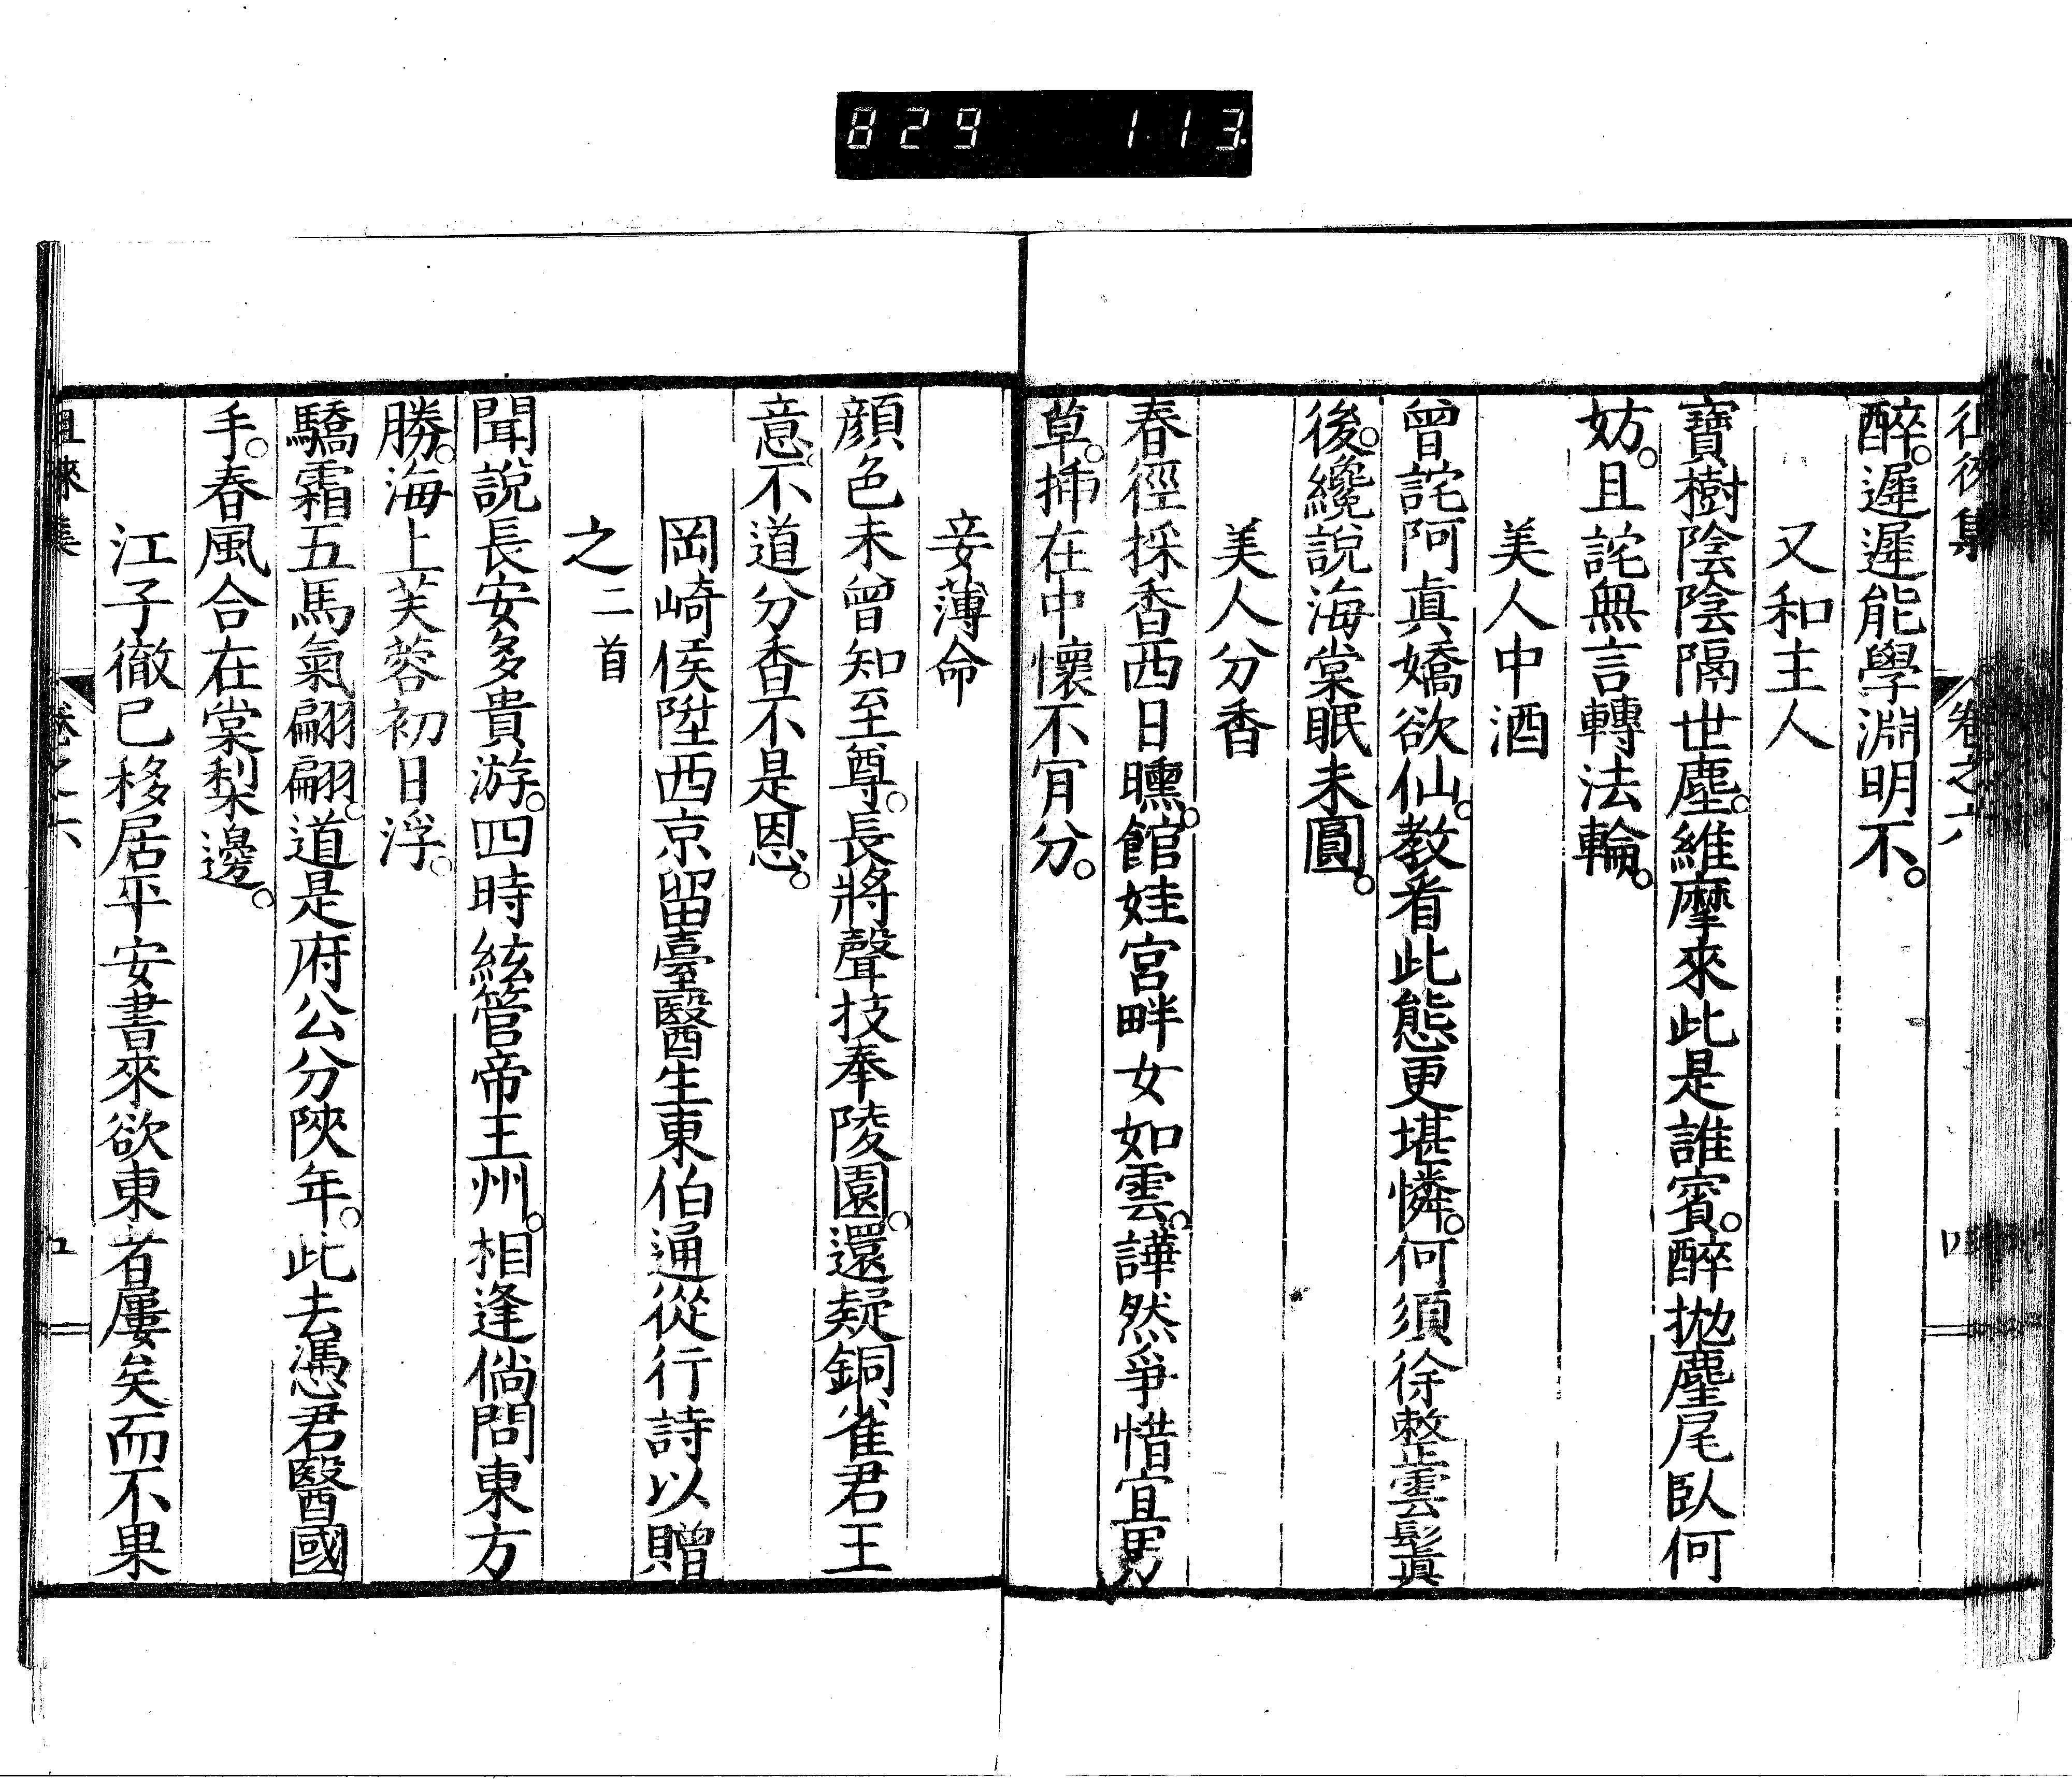 829 113
徂徠集 卷之六 四
醉。遲遲能學淵明不。
又和主人
寶樹陰陰隔世塵。維摩來此是誰賓。醉拋麈尾臥何
妨。且詫無言轉法輪。
美人中酒
曾詫阿眞嬌欲仙。教看此態更堪憐。何須徐整雲鬟
後。纔說海棠眠未圓。
美人分香
春徑採香西日曛。館娃宮畔女如雲。譁然爭惜宜男
草。揷在中懷不肎分。
妾薄命
顏色未曾知至尊。長將聲技奉陵園。還疑銅雀君王
意。不道分香不是恩。
岡崎侯陞西京留臺醫生東伯通從行詩以贈
之二首
聞說長安多貴游。四時絃管帝王州。相逢倘問東方
勝。海上芙蓉初日浮。
驕霜五馬氣翩翩。道是府公分陝年。此去馮君醫國
手。春風合在棠梨邊。
江子徹已移居平安書來欲東者屢矣而不果
徂徠集 卷之六 五